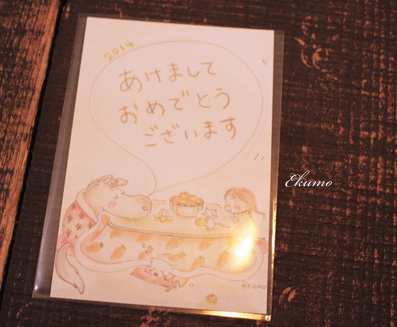 2014
あけまして
おめでとう
ございます
Ekumo